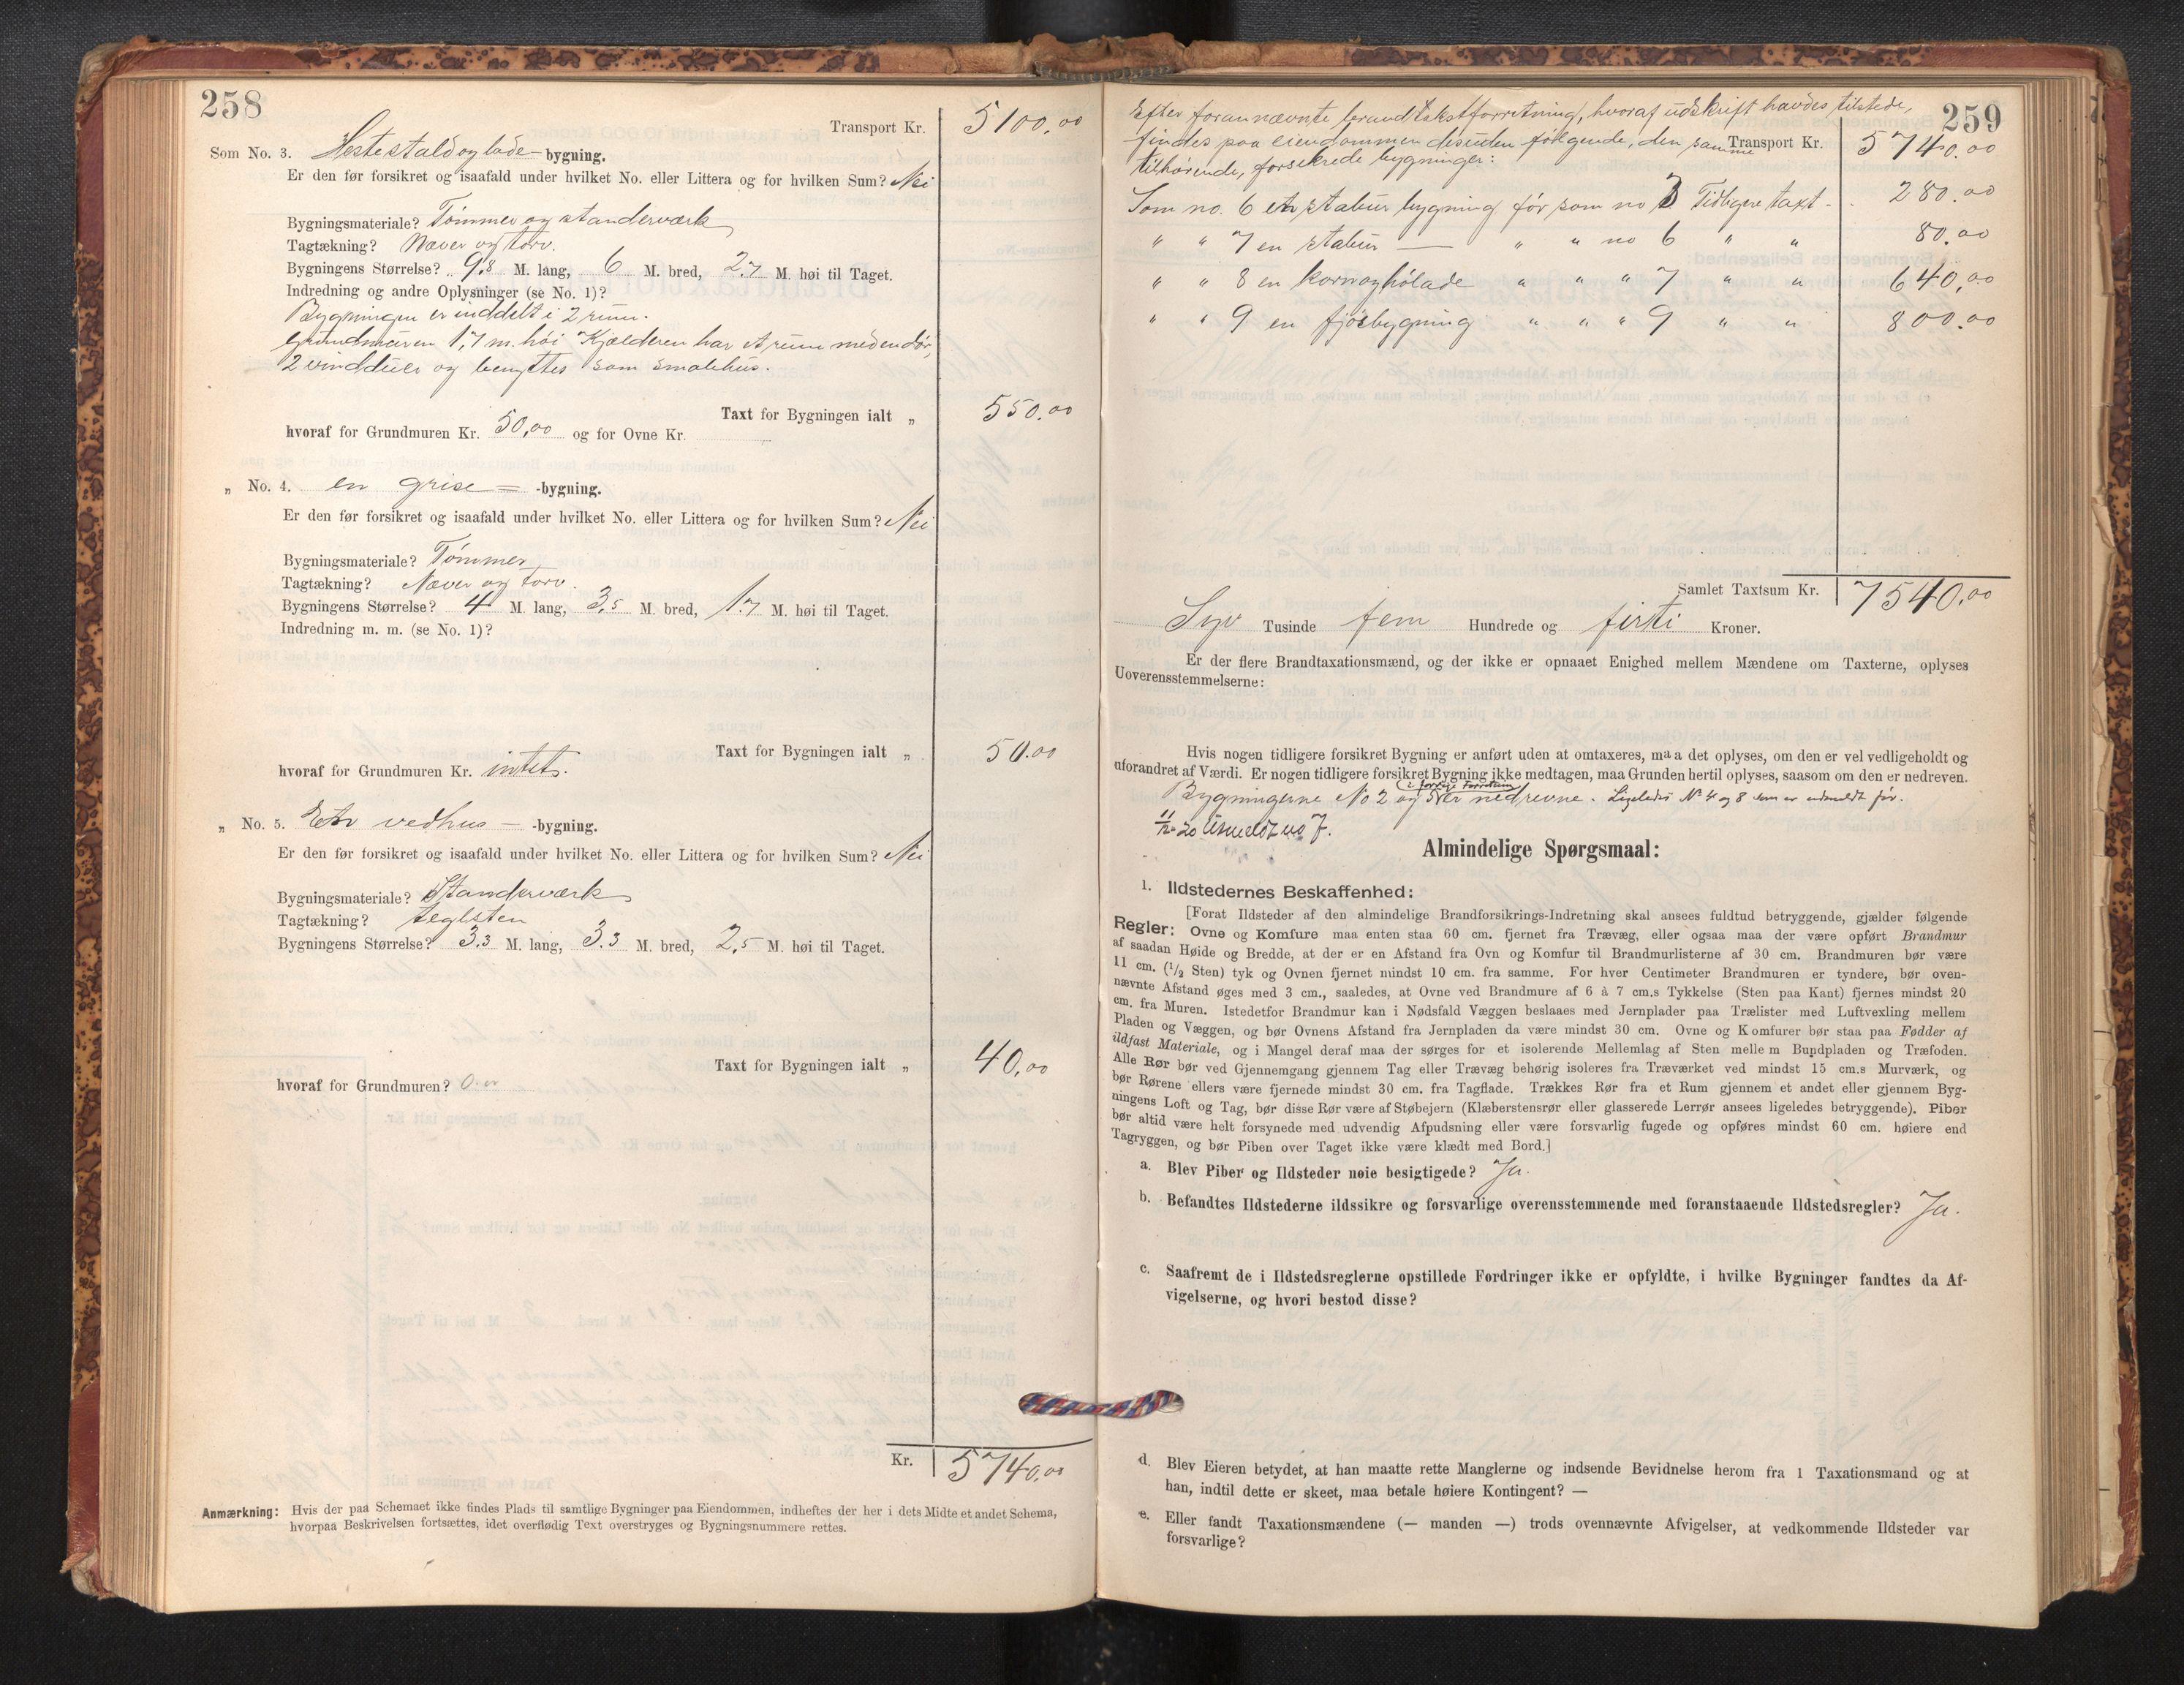 258
Transport Kr. 5100.00
Som No. 3. Hestestald og lade bygning.
Er den før forsikret og isaafald under hvilket No. eller Littera og for hvilken Sum? Nei
Bygningsmateriale? Tømmer og standerværk
Tagtækning? Næver og torv.
Bygningens Størrelse? 9,8 M. lang, 6 M. bred, 2.7 M. høi til Taget.
Indredning og andre Oplysninger (se No. 1)?
Bygningen er inddelt i 2 rum.
Grundmuren 1,7 m. høi Kjælderen har et rum med en dør,
2 vindduer og benyttes som smalehus.
Taxt for Bygningen ialt „ 550.00
hvoraf for Grundmuren Kr. 50,00 og for Ovne Kr.
„ No. 4. en grise -bygning.
Er den før forsikret og isaafald under hvilket No. eller Littera og for hvilken Sum? Nei
Bygningsmateriale? Tømmer
Tagtækning? Næver og torv.
Bygningens Størrelse? 4 M. lang, 3,5 M. bred, 1.7 M. høi til Taget.
Indredning m. m. (se No. 1)?
Taxt for Bygningen ialt „ 50.00
hvoraf for Grundmuren Kr. intet.
„ No. 5. Et vedhus -bygning.
Er den før forsikret og isaafald under hvilket No. eller Littera og for hvilken Sum? Nei
Bygningsmateriale? Standerværk
Tagtækning? teglsten
Bygningens Størrelse? 3.3 M. lang, 3.3 M. bred, 2,5 M. høi til Taget.
Taxt for Bygningen ialt „ 40,00
hvoraf for Grundmuren? 0.00
Kr. 5740,00
Anmærkning: Hvis der paa Schemaet ikke findes Plads til samtlige Bygninger paa Eiendommen, indheftes der her i dets Midte et andet Schema,
hvorpaa Beskrivelsen fortsættes, idet overflødig Text overstryges og Bygningsnummere rettes.
259
Efter forannævnte brandtakstforretning, hvoraf udskrift havdes tilstede,
findes paa eiendommen desuden følgende, den samme
Transport Kr. 5740.00
tilhørende, forsikrede bygninger:
Som no. 6 et stabur bygning før som no 3 Tidligere taxt 280.00
" " 7 en stabur — " " no 6 " " 80.00
" " 8 en korn og hølade " " " 7 " " 640,00
" " 9 en fjøsbygning " " " 9 " " 800.00
Samlet Taxtsum Kr. 7540,00
Syv Tusinde fem Hundrede og firti Kroner.
Er der flere Brandtaxationsmænd, og der ikke er opnaaet Enighed mellem Mændene om Taxterne, oplyses
Uoverensstemmelserne:
Hvis nogen tidligere forsikret Bygning er anført uden at omtaxeres, maa det oplyses, om den er vel vedligeholdt og
uforandret af Værdi. Er nogen tidligere forsikret Bygning ikke medtagen, maa Grunden hertil oplyses, saasom om den er nedreven.
i forrige Forretning
Bygningerne No 2 og 5 er nedrevne. Ligeledes No 4 og 8 som er udmeldt før.
11/12-20 Utmeldt no 7.
Almindelige Spørgsmaal:
1. Ildstedernes Beskaffenhed:
[Forat Ildsteder af den almindelige Brandforsikrings-Indretning skal ansees fuldtud betryggende, gjælder følgende
Regler: Ovne og Komfure maa enten staa 60 cm. fjernet fra Trævæg, eller ogsaa maa der være opført Brandmur
af saadan Høide og Bredde, at der er en Afstand fra Ovn og Komfur til Brandmurlisterne af 30 cm. Brandmuren bør være
11 cm. (1/2 Sten) tyk og Ovnen fjernet mindst 10 cm. fra samme. For hver Centimeter Brandmuren er tyndere, bør oven-
nævnte Afstand øges med 3 cm., saaledes, at Ovne ved Brandmure af 6 à 7 cm.s Tykkelse (Sten paa Kant) fjernes mindst 20
cm. fra Muren. Istedetfor Brandmur kan i Nødsfald Væggen beslaaes med Jernplader paa Trælister med Luftvexling mellem
Pladen og Væggen, og bør Ovnens Afstand fra Jernpladen da være mindst 30 cm. Ovne og Komfurer bør staa paa Fødder af
ildfast Materiale, og i Mangel deraf maa der sørges for et isolerende Mellemlag af Sten mellem Bundpladen og Træfoden.
Alle Rør bør ved Gjennemgang gjennem Tag eller Trævæg behørig isoleres fra Træværket ved mindst 15 cm.s Murværk, og
bør Rørene ellers være fjernede mindst 30 cm. fra Tagflade. Trækkes Rør fra et Rum gjennem et andet eller gjennem Byg-
ningens Loft og Tag, bør disse Rør være af Støbejern (Klæberstensrør eller glasserede Lerrør ansees ligeledes betryggende). Piber
bør altid være helt forsynede med udvendig Afpudsning eller være forsvarlig fugede og opføres mindst 60 cm. høiere end
Tagryggen, og bør Piben over Taget ikke være klædt med Bord.]
a. Blev Piber og Ildsteder nøie besigtigede? Ja.
b. Befandtes Ildstederne ildssikre og forsvarlige overensstemmende med foranstaaende Ildstedsregler? Ja.
c. Saafremt de i Ildstedsreglerne opstillede Fordringer ikke er opfyldte, i hvilke Bygninger fandtes da Af-
vigelserne, og hvori bestod disse?
d. Blev Eieren betydet, at han maatte rette Manglerne og indsende Bevidnelse herom fra 1 Taxationsmand og at
han, indtil dette er skeet, maa betale høiere Kontingent? —
e. Eller fandt Taxationsmændene (— manden —) trods ovennævnte Afvigelser, at vedkommende Ildsteder var
forsvarlige?